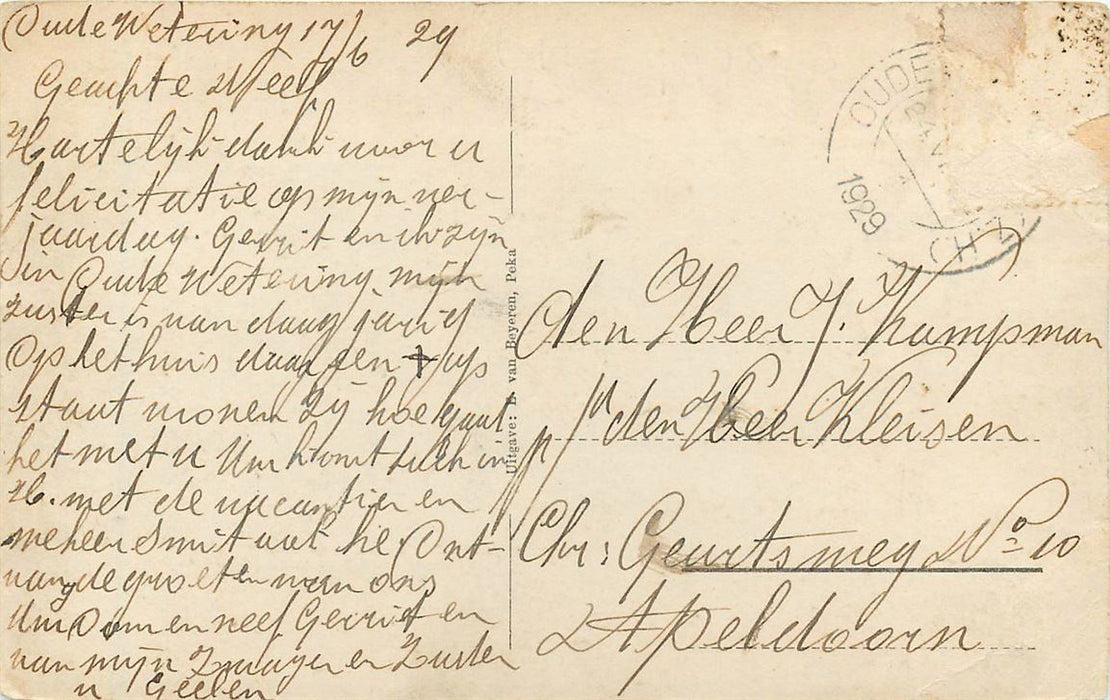 Oude Wetering 17/6 29
Geachte Neef
Hartelijk dank voor u
felicitatie op mijn ver-
jaardag. Gerrit en ik zijn
in Oude Wetering mijn
zuster is van daag jarig
Op het huis daar een + op
staat wonen zij hoe gaat
het met u komt toch in
H. met de vacantie en
meheer Smit ook he. Ont-
vang de groeten van ons
Oom en neef Gerrit en
van mijn Zwager en Zuster
u Geelen
Uitgave: L. van Beyeren, Peka
OUDE
1929
den Heer J. Kampman
p/a den Heer Kleisen
Chr: Geurtsweg No 10
Apeldoorn